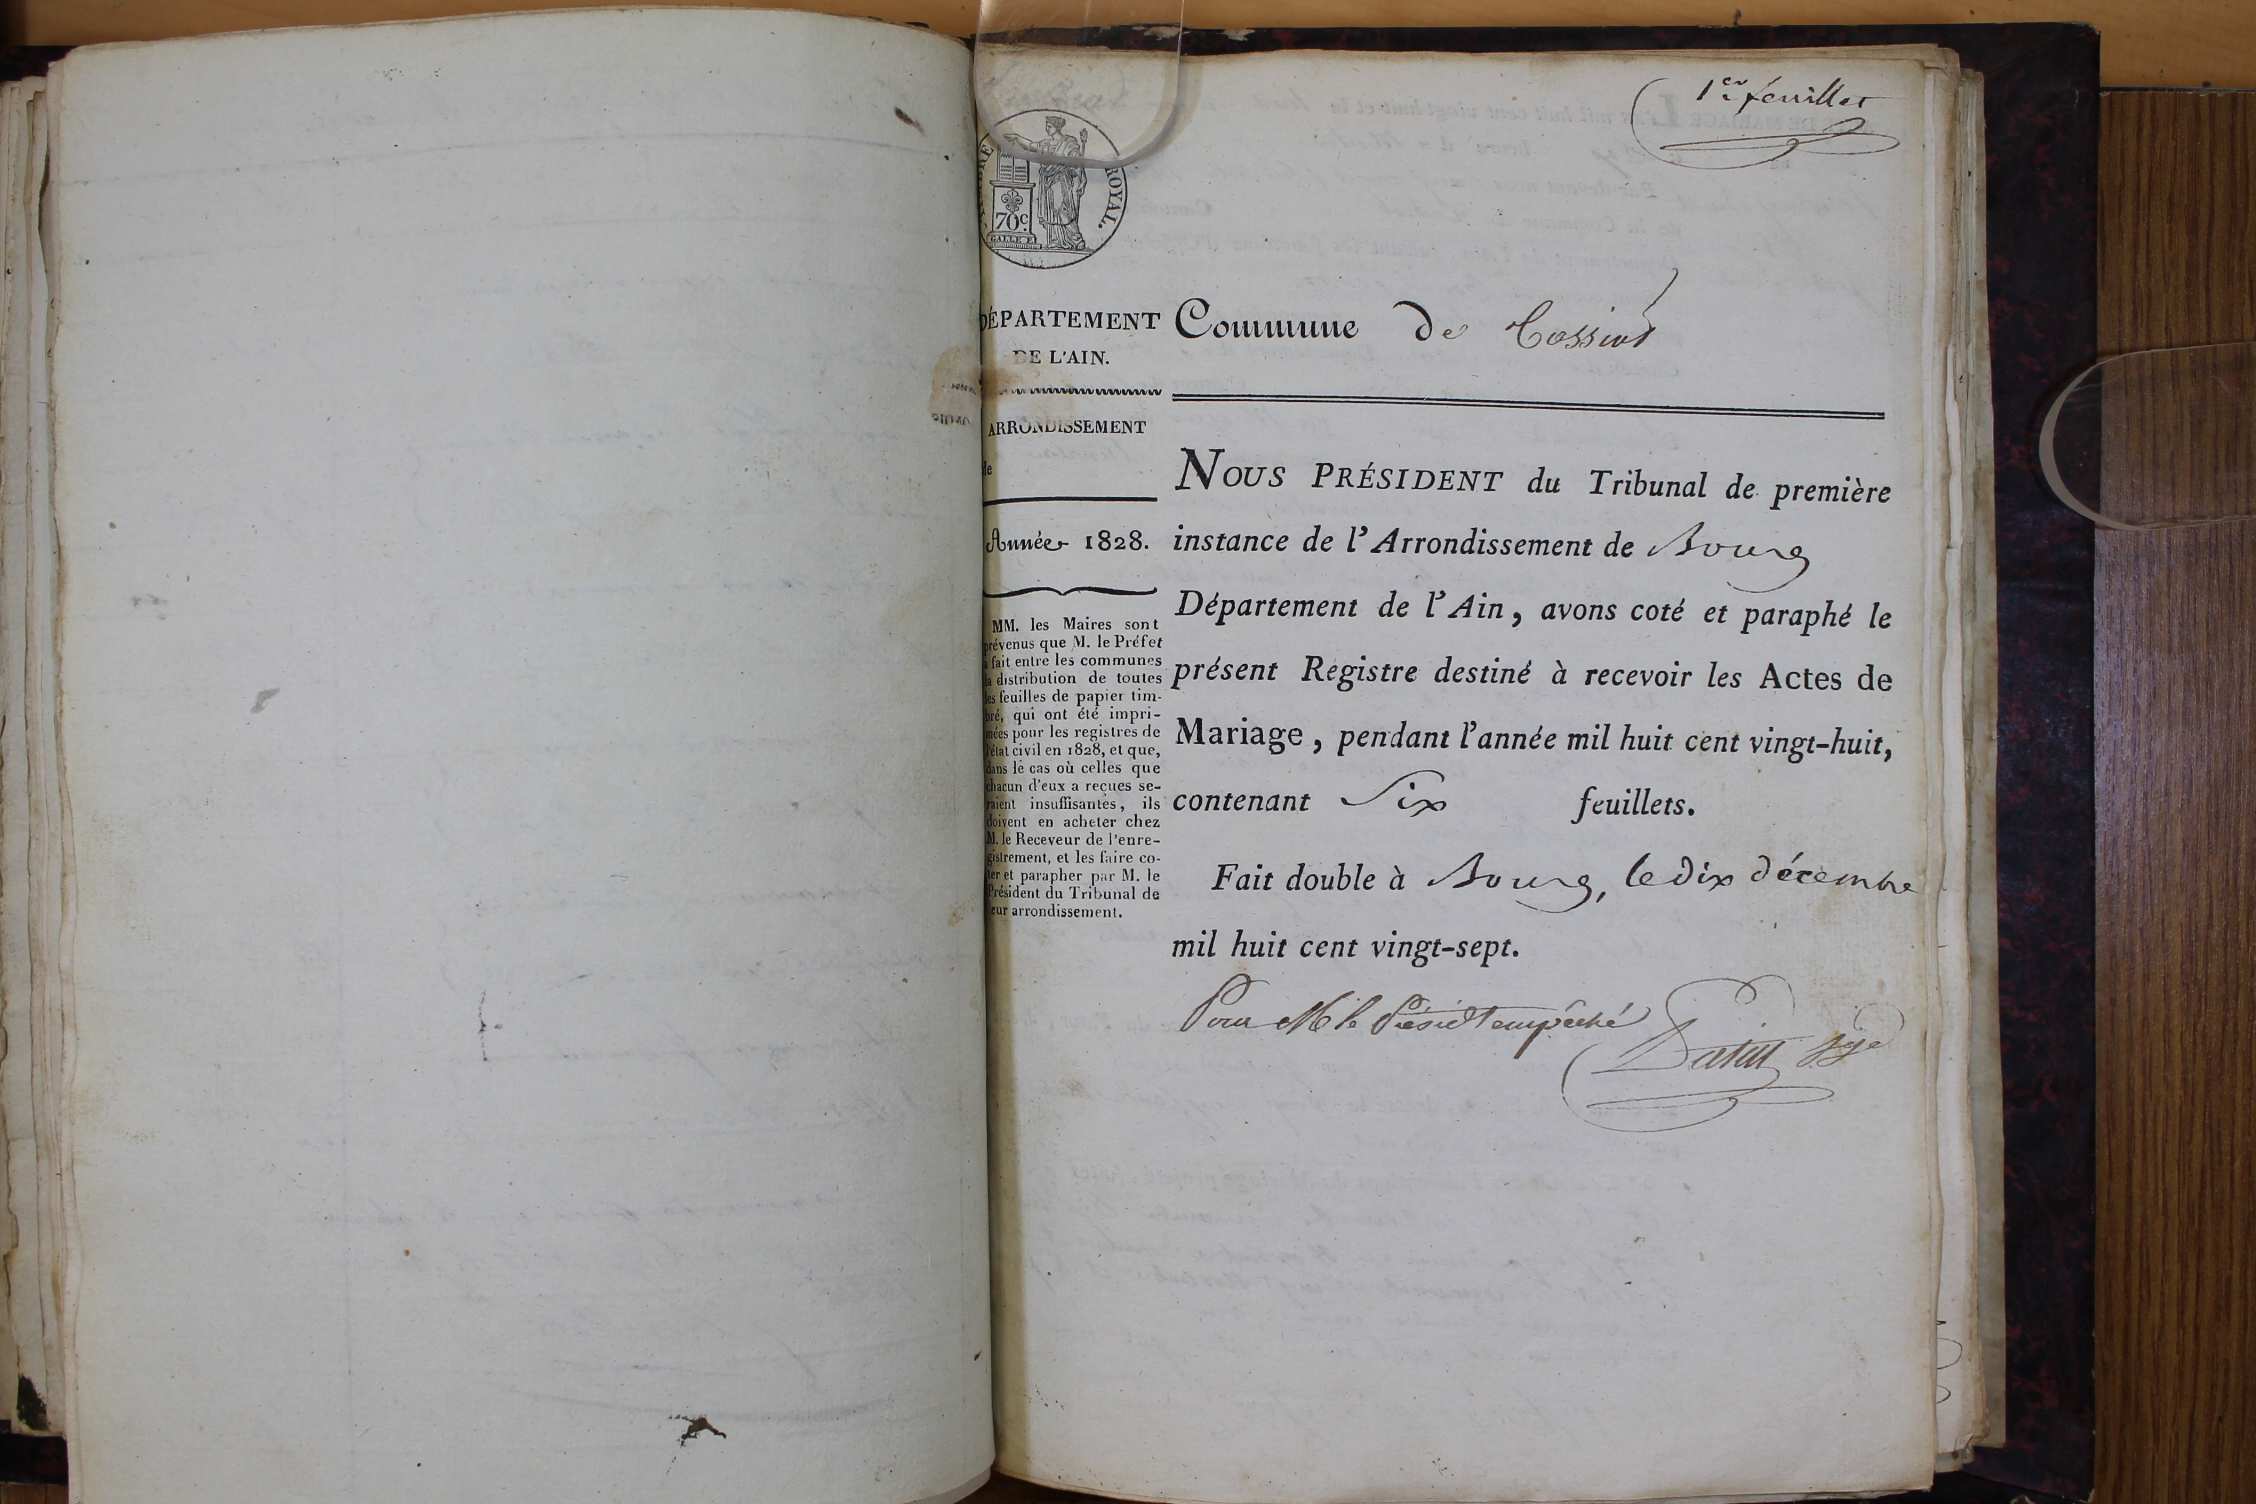 1er feuillet
ROYAL.
70c.
GALLE F.
DÉPARTEMENT
DE L'AIN.
ARRONDISSEMENT
de
Année 1828.
MM. les Maires sont
prévenus que M. le Préfet
a fait entre les communes
la distribution de toutes
les feuilles de papier tim-
bré, qui ont été impri-
mées pour les registres de
l'état civil en 1828, et que,
dans le cas où celles que
chacun d'eux a reçues se-
raient insuffisantes, ils
doivent en acheter chez
M. le Receveur de l'enre-
gistrement, et les faire co-
ter et parapher par M. le
Président du Tribunal de
leur arrondissement.
Commune de Tossiat
NOUS PRÉSIDENT du Tribunal de première
instance de l'Arrondissement de Bourg
Département de l'Ain, avons coté et paraphé le
présent Registre destiné à recevoir les Actes de
Mariage, pendant l'année mil huit cent vingt-huit,
contenant Six feuillets.
Fait double à Bourg, le dix décembre
mil huit cent vingt-sept.
Pour M le Présidt empêché
juge